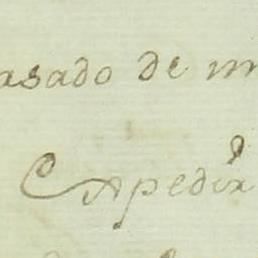 asado de m
Expedir